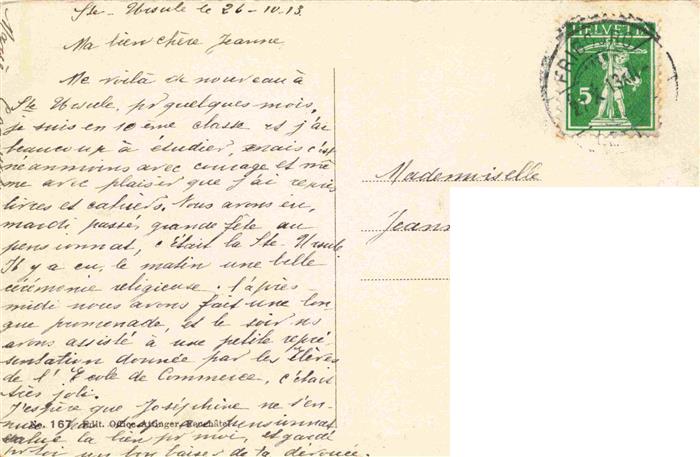 Ste- Ursule le 26-10.13.
Ma bien chère Jeanne
Me voilà de nouveau à
Ste Ursule, pr quelques mois.
je suis en 10ème classe et j'ai
beaucoup à étudier, mais c'est
néanmoins avec courage et mê-
me avec plaisir que j'ai repris
livres et cahiers. Nous avons eu,
mardi passé, grande fête au
pensionnat, c'était la Ste-Ursule
Il y a eu, le matin une belle
cérémonie religieuse. l'après-
midi nous avons fait une lon-
gue promenade, et le soir ns
avons assisté à une petite repré-
sentation donnée par les Elèves
de l'Ecole de Commerce, c'était
très joli.
J'espère que Joséphine ne s'en-
nuie pas
No. 167. Edit. Office Attinger, Neuchâtel
salue la bien pr moi, et garde
pr toi un bon baiser de ta dévouée.
HELVETIA
5
FRIBOURG
Mademoiselle
Jeann